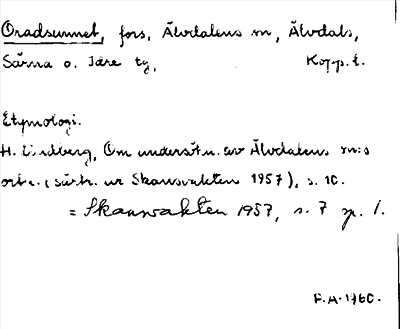 Oradsunnet, fors, Älvdalens m, Älvdals,
Särna o. Idre tg, Kopp. l.
Etymologi.
H. Lindberg, Om undersökn. av Älvdalens m:s
ortn. (särtr. ur Skansvakten 1957), s. 10.
= Skansvakten 1957, s. 7 sp. 1.
F.A. 1960.